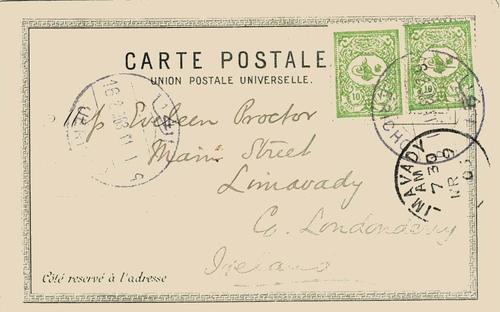 CARTE POSTALE
UNION POSTALE UNIVERSELLE.
10
10
JERICHO
Miss Eveleen Proctor
Main Street
Limavady
Co. Londonderry
Ireland
LIMAVADY
AM
7 30
Côté reservé à l'adresse